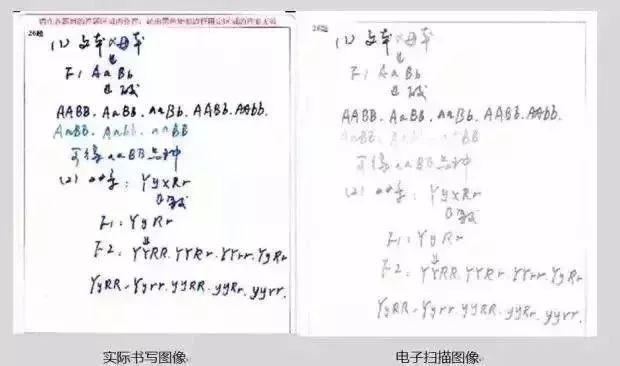 请在各题目的答题区域内作答，超出黑色矩形边框限定区域的答案无效
26题
(1) 父本 × 母本
F1 AaBb
AABB. AaBB. aaBb. AABb. AAbb.
AaBb. Aabb. aaBB
可得aaBB品种
(2) YyxRr
F1: YyRr
F2: YYRR. YYRr. YYrr. YyRr
YyRR. Yyrr. yyRR. yyRr. yyrr.
26题
(1) 父本 × 母本
F1 AaBb
AABB. AaBB. aaBb. AABb. AAbb.
可得aaBB品种
(2) YyxRr
F1: YyRr
F2: YYRR. YYRr. YYrr. YyRr
YyRR. Yyrr. yyRR. yyRr. yyrr.
实际书写图像
电子扫描图像